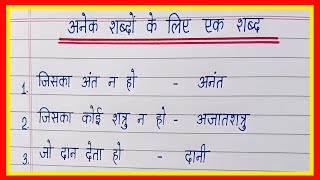 अनेक शब्दों के लिए एक शब्द
1. जिसका अंत न हो - अनंत
2. जिसका कोई शत्रु न हो - अजातशत्रु
3. जो दान देता हो - दानी